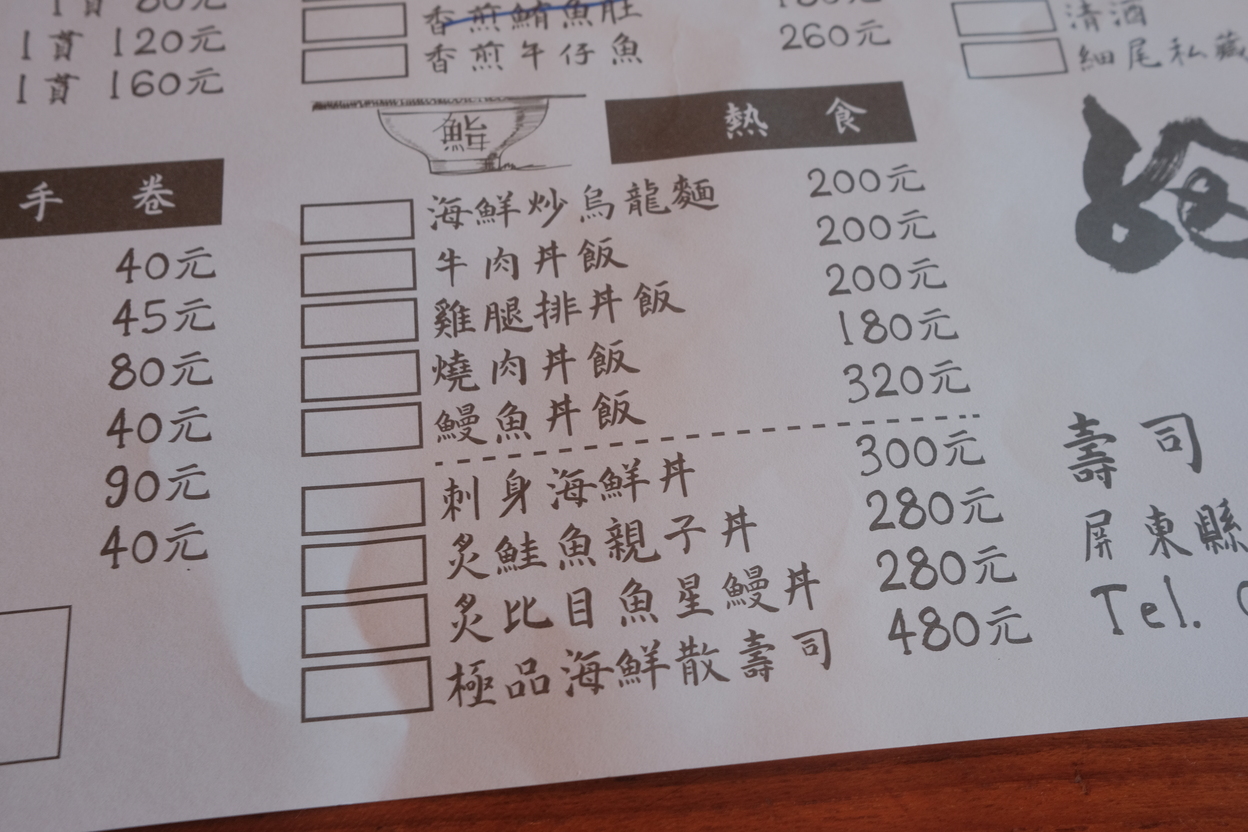 80元
1貫 120元
1貫 160元
手卷
40元
45元
80元
40元
90元
40元
香煎鮪魚肚
香煎午仔魚 260元
鮨
熱食
海鮮炒烏龍麵 200元
牛肉丼飯 200元
雞腿排丼飯 200元
燒肉丼飯 180元
鰻魚丼飯 320元
刺身海鮮丼 300元
炙鮭魚親子丼 280元
炙比目魚星鰻丼 280元
極品海鮮散壽司 480元
清酒
細尾私藏
壽司
屏東縣
Tel.